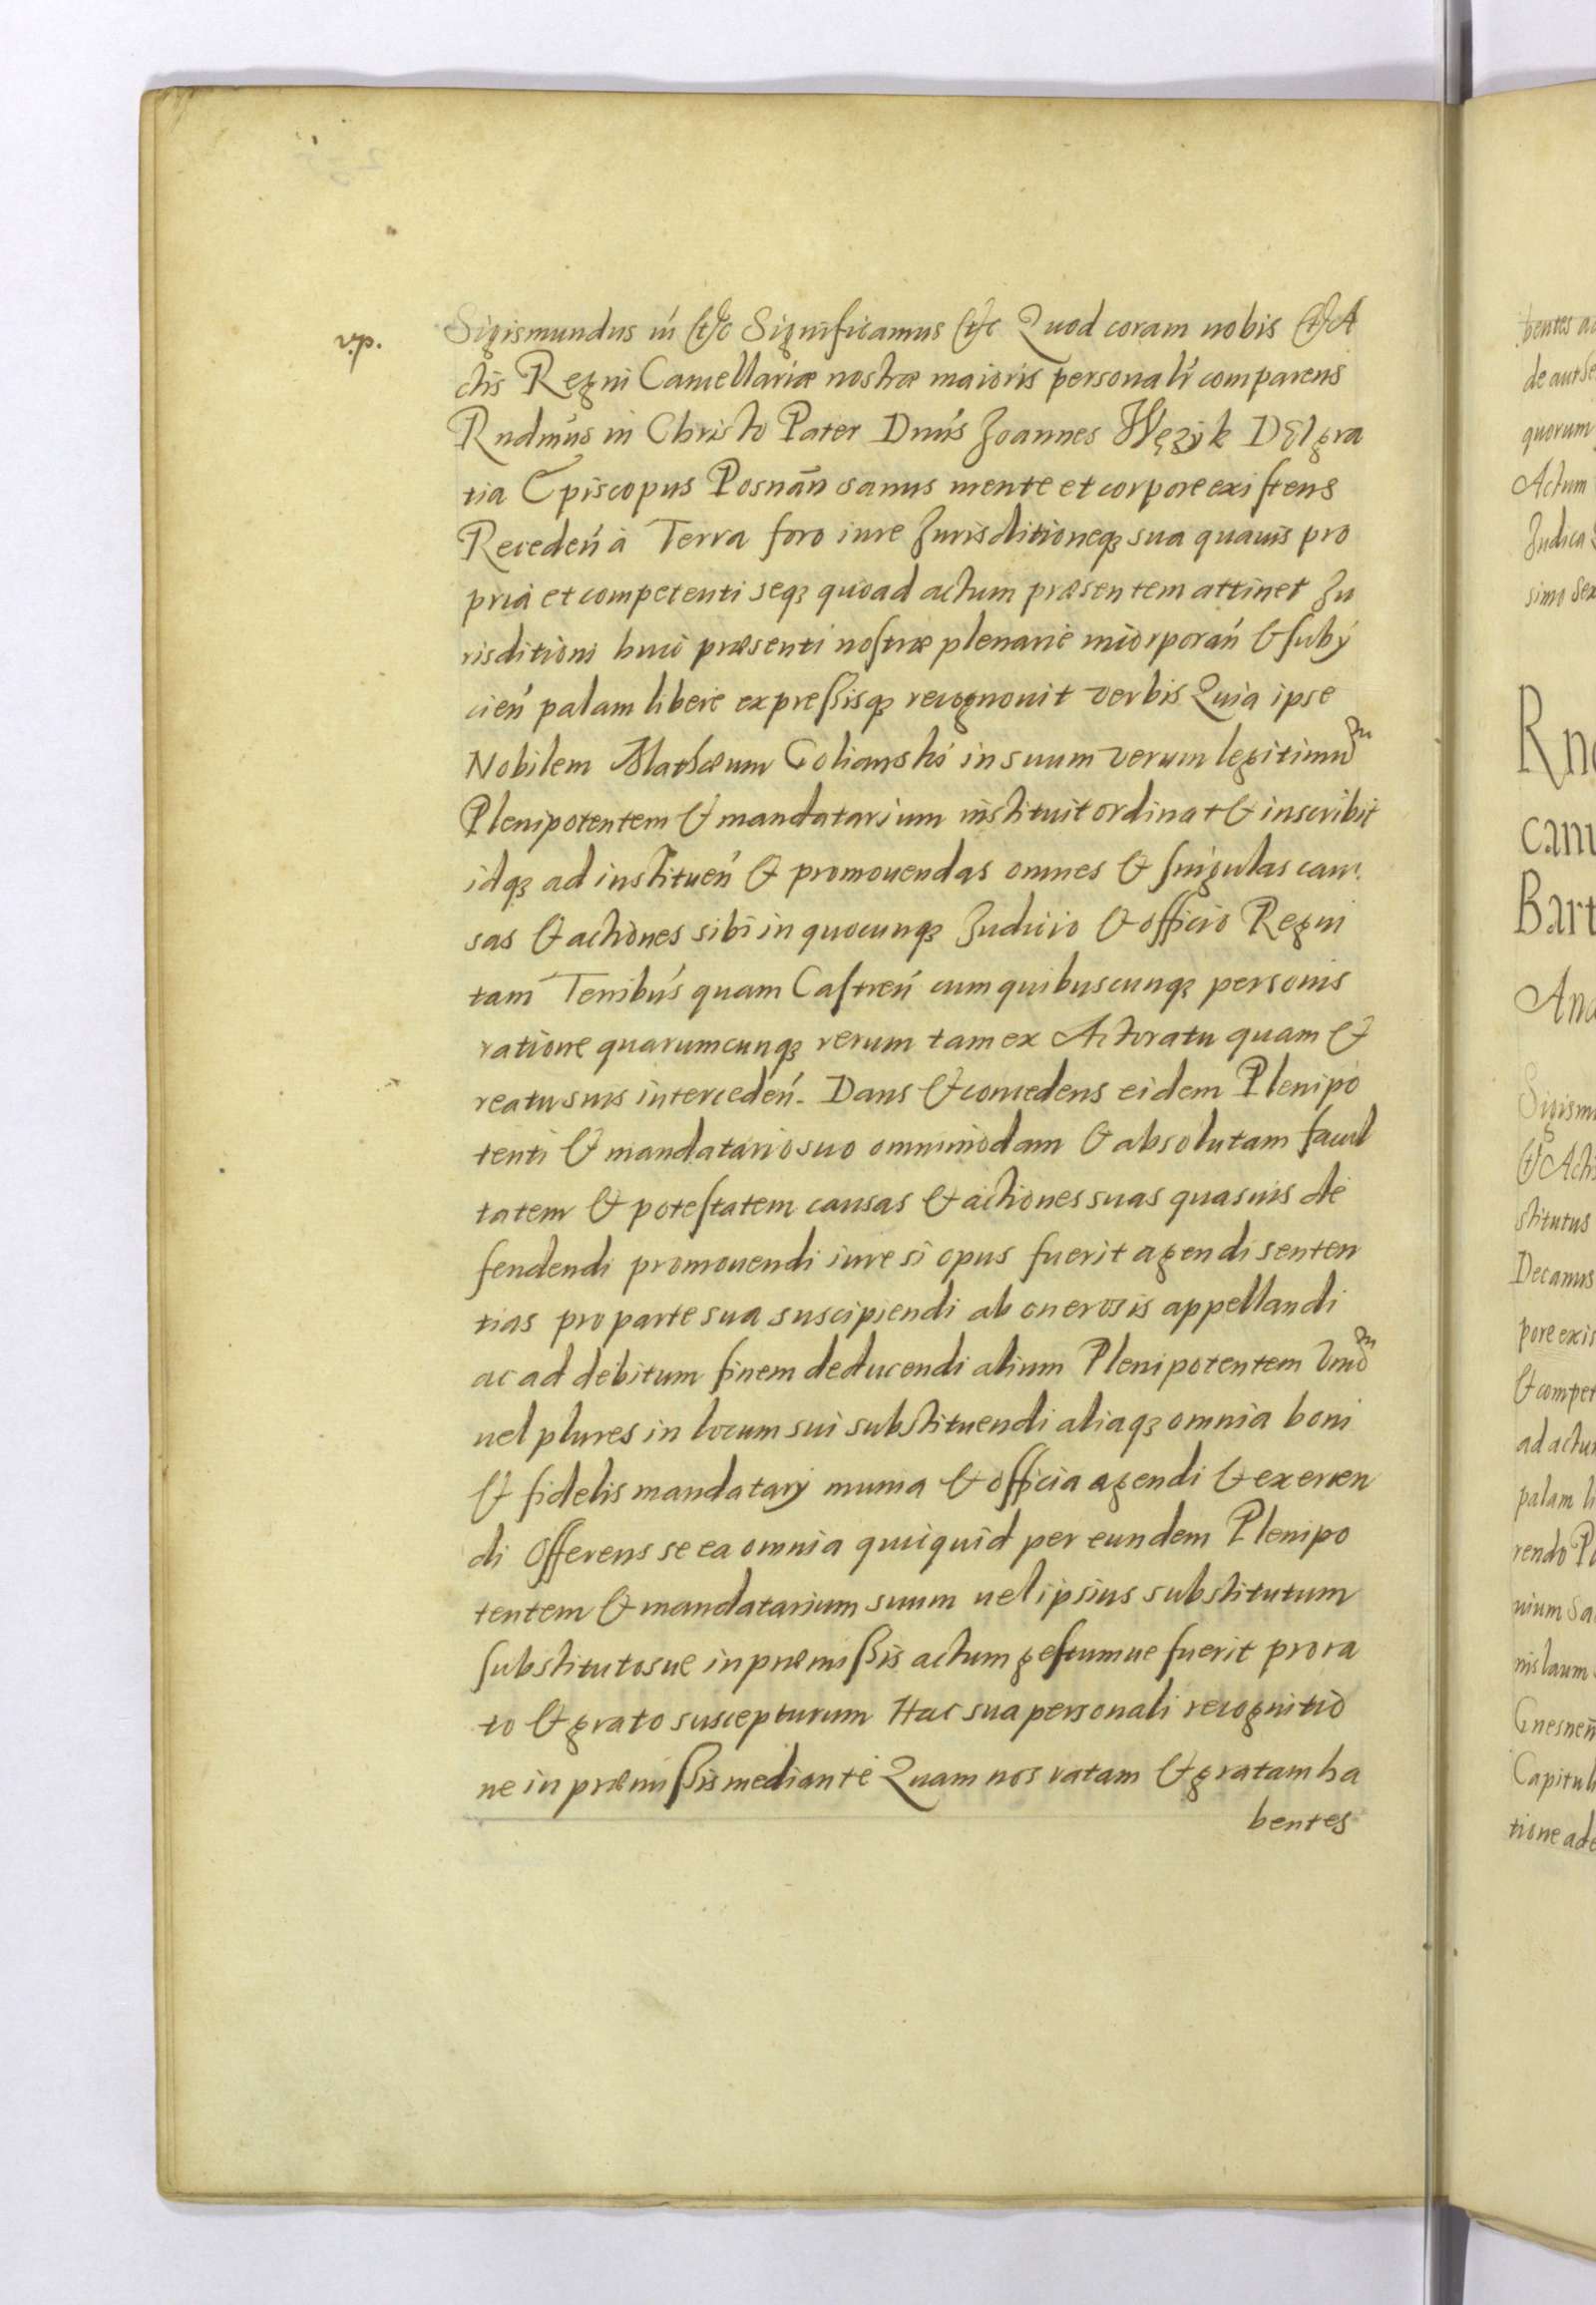 Sigismundus iń &c Significamus &c Quod coram nobis & A
ctis Regni Cancellariæ nostræ maioris personalr comparens
Rndmus in Christo Pater Dnus Joannes Wężyk Dei gra
tia Episcopus Posnan̄ sanus mente et corpore existens
Receden à Terra foro iure Jurisditioneqꝫ sua quauis pro
pria et competenti seqꝫ quoad actum præsentem attinet Ju
risditioni huic præsenti nostræ plenarie incorporan & subÿ
cien palam libere expressisqꝫ recognouit verbis Quia ipse
Nobilem Mathæum Golianski in suum verum legitimum
Plenipotentem & mandatarium instituit ordinat & inscribit
idqꝫ ad instituen & promouendas omnes & singulas cau
sas & actiones sibi in quocunqꝫ Judicio & officio Regni
tam Terribus quam Castren cum quibuscunqꝫ personis
ratione quarumcunqꝫ rerum tam ex Actoratu quam &
reatu suis interceden. Dans & concedens eidem Plenipo
tenti & mandatario suo omnimodam & absolutam facul
tatem & potestatem causas & actiones suas quasuis de
fendendi promouendi iure si opus fuerit agendi senten
tias pro parte sua suscipiendi ab onerosis appellandi
ac ad debitum finem deducendi alium Plenipotentem vnum
uel plures in locum sui substituendi aliaqꝫ omnia boni
& fidelis mandatarÿ munia & officia agendi & exercen
di Offerens se ea omnia quicquid per eundem Plenipo
tentem & mandatarium suum uel ipsius substitutum
substitutosue in præmissis actum gestumue fuerit pro ra
to & grato suscepturum Hac sua personali recognitio
ne in præmissis mediante Quam nos ratam & gratam ha
bentes
bentes
de aut
quorum
Actum
Judica
simo
Rn
Bart
Sigism
& Actis
stitutus
Decanus
pore exis
& compet
ad actu
palam li
rendo
nium Sa
nislaum
Gnesnen̄
Capituli
tione ad